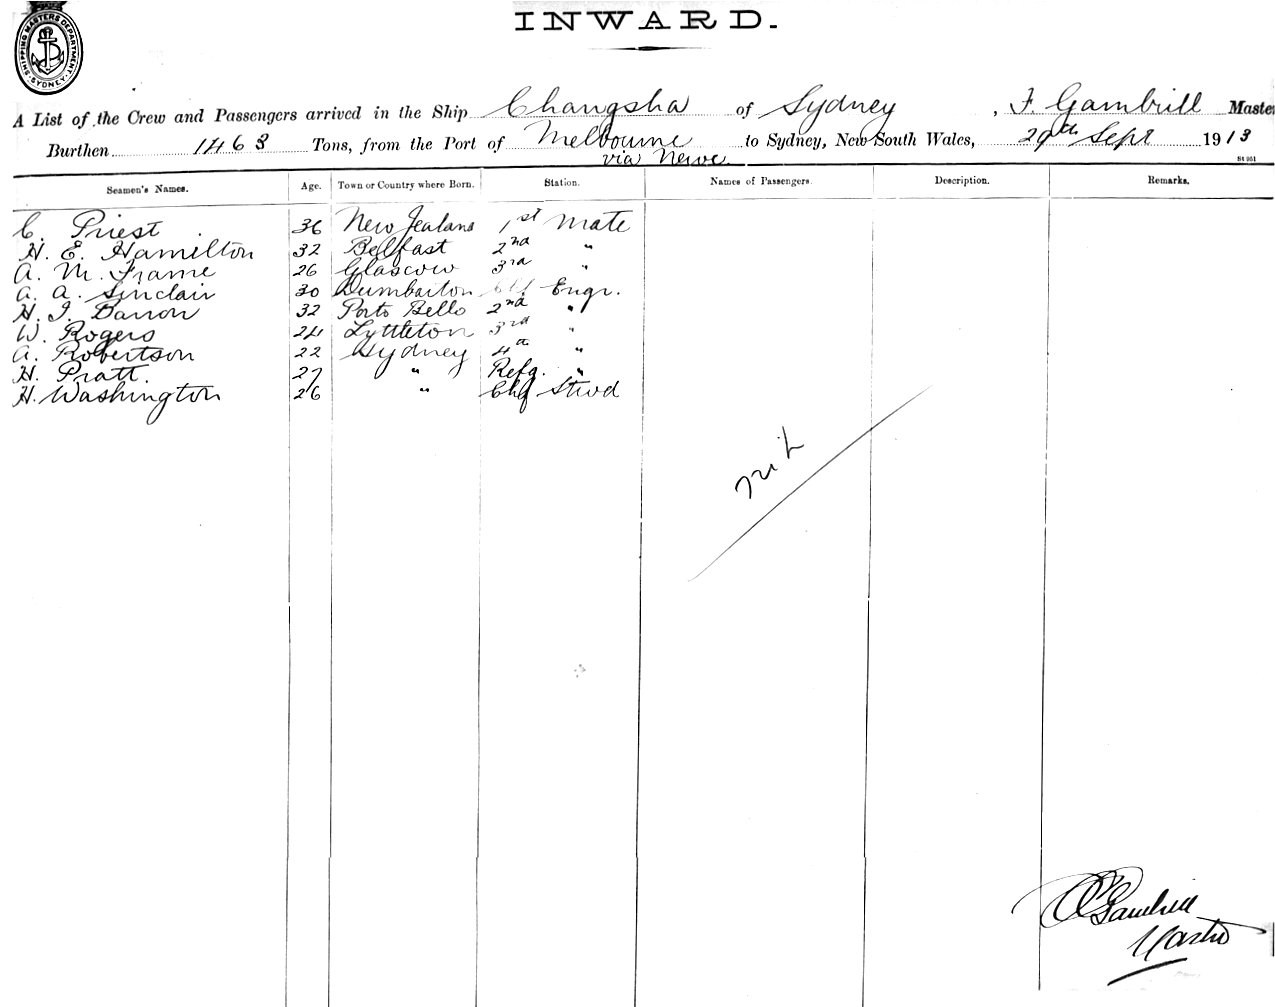 INWARD.
SHIPPING MASTERS DEPARTMENT SYDNEY
A List of the Crew and Passengers arrived in the Ship Changsha of Sydney, F. Gambrill Master
Burthen 1463 Tons, from the Port of Melbourne to Sydney, New South Wales, 29th Sept 1913
via Newc
Seamen's Names. Age. Town or Country where Born. Station. Names of Passengers. Description. Remarks.
C. Priest 36 New Zealand 1st Mate
H. E. Hamilton 32 Belfast 2nd "
A. M. Frame 26 Glascow 3rd "
A. A. Sinclair 30 Dumbarton Engr.
H. J. Barron 32 Porto Bello 2nd "
W. Rogers 24 Lyttleton 3rd "
A. Robertson 22 Sydney 4th "
H. Pratt. 27 " Refg. "
H. Washington 26 " Chf Stwd
Nil
Gambrill
Master